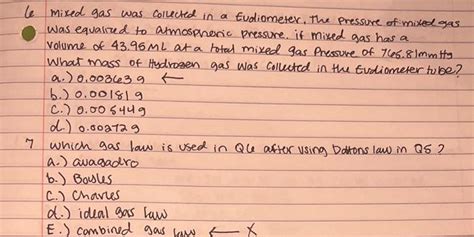 6 Mixed gas was collected in a Eudiometer. The pressure of mixed gas
was equalized to atmospheric pressure. if mixed gas has a
volume of 43.96 ML at a total mixed gas Pressure of 765.81mmHg
What mass of Hydrogen gas was collected in the Eudiometer tube?
a.) 0.003639 ←
b.) 0.001819
C.) 0.005449
d.) 0.002729
7 which gas law is used in Q6 after using Daltons law in Q5?
a.) avagadro
b.) Boyles
C.) Charles
d.) ideal gas law
E.) combined gas law ← X